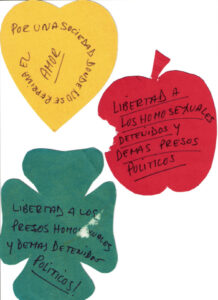 POR UNA SOCIEDAD DONDE NO SE REPRIMA EL
AMOR
LIBERTAD A
LOS HOMOSEXUALES
DETENIDOS Y
DEMAS PRESOS
POLITICOS
LIBERTAD A LOS
PRESOS HOMOSEXUALES
Y DEMAS DETENIDOS
POLITICOS!